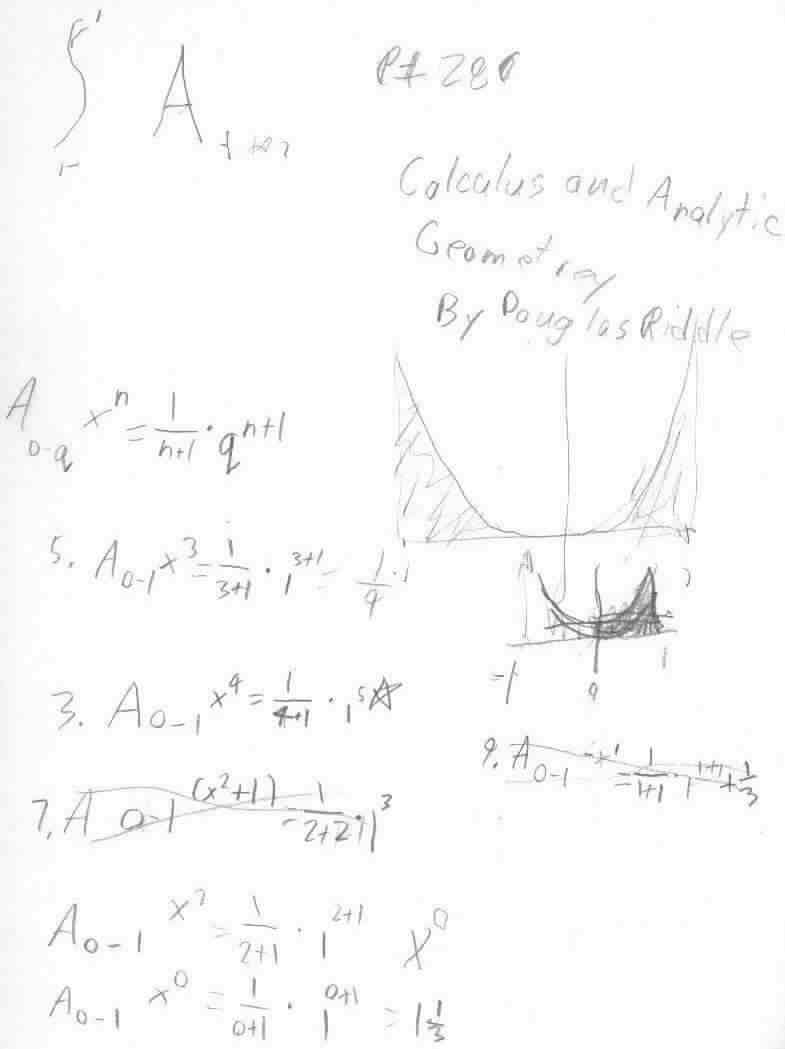 ∫ A
Calculus and Analytic
Geometrey
By Douglas Riddle
A 0-q x^n = 1/(n+1) · q^(n+1)
5. A 0-1 x^3 = 1/(3+1) · 1^(3+1) = 1/4 · 1
-1 0 1
3. A 0-1 x^4 = 1/(4+1) · 1^5
9. A 0-1 -x^1 = 1/(1+1) · 1^(1+1) + 1/3
7. A 0-1 (x^2+1) = 1/(2+2) · 1^3
A 0-1 x^2 = 1/(2+1) · 1^(2+1) x^0
A 0-1 x^0 = 1/(0+1) · 1^(0+1) = 1 1/3